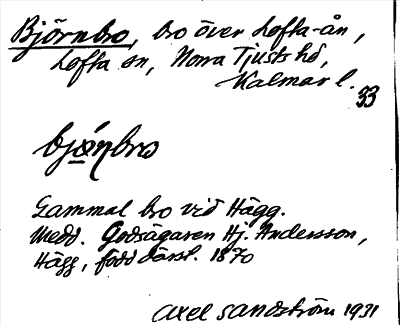 Björnbro, bro över Lofta-ån,
Lofta sn, Norra Tjusts hd,
Kalmar l.
33
bjǿnbro
Gammal bro vid Hägg.
Medd. Godsägaren Hj. Andersson,
Hägg, född därst. 1870
Axel Sandström 1931